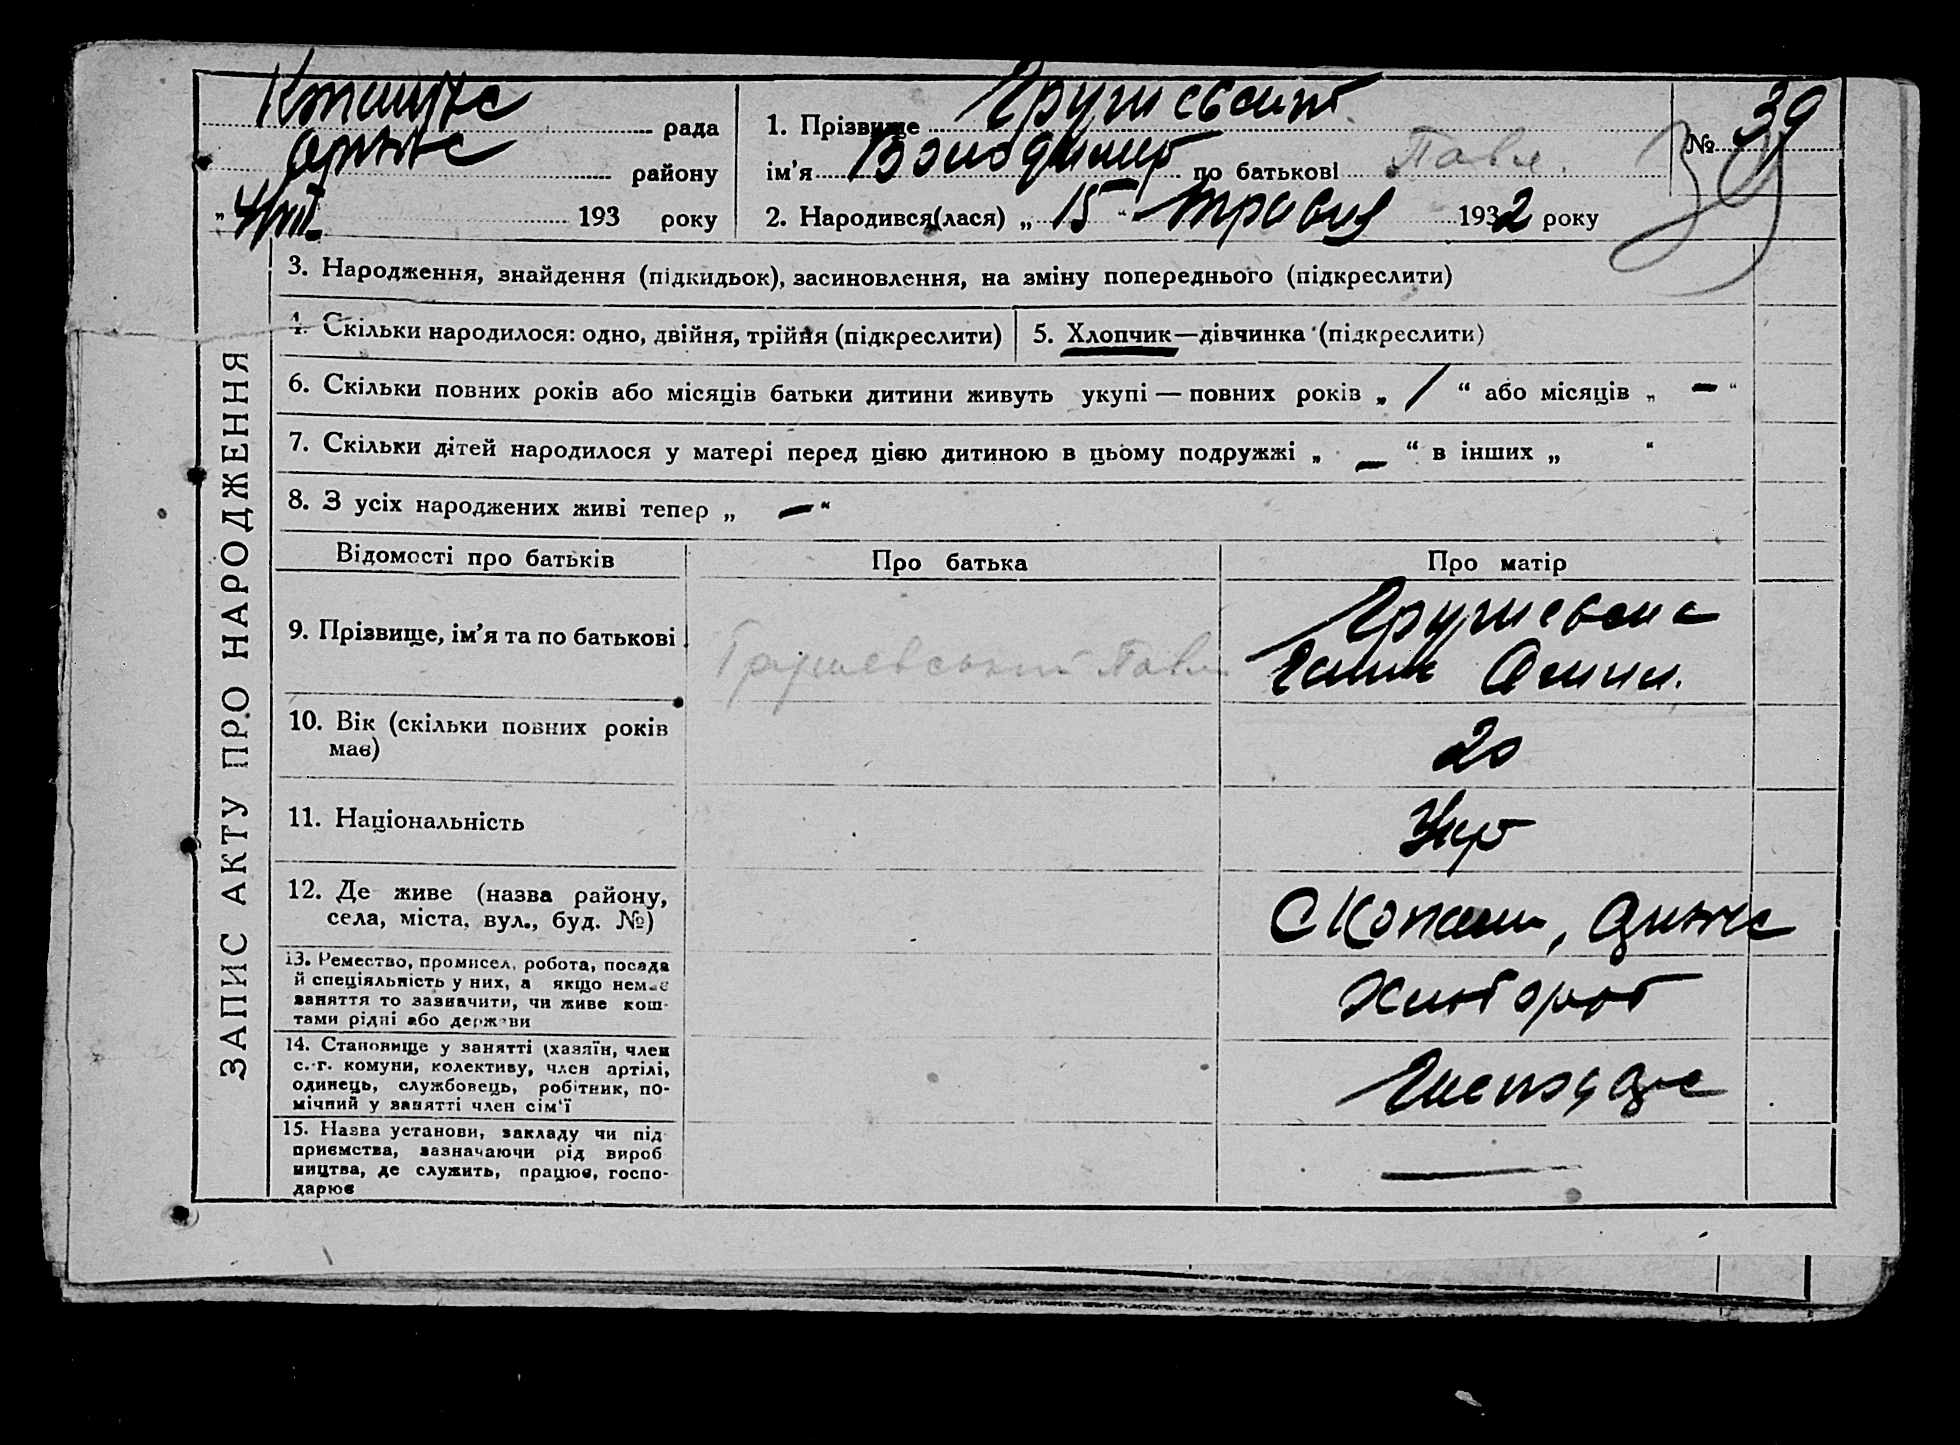 ЗАПИС АКТУ ПРО НАРОДЖЕННЯ
рада
району
„ 4/VII 193 року
1. Прізвище Грушевський
ім'я Володимир по батькові Павл.
2. Народився(лася) „ 15 “ травня 1932 року
№ 39
39
3. Народження, знайдення (підкидьок), засиновлення, на зміну попереднього (підкреслити)
4. Скільки народилося: одно, двійня, трійня (підкреслити)
5. Хлопчик—дівчинка (підкреслити)
6. Скільки повних років або місяців батьки дитини живуть укупі — повних років „ / “ або місяців „ — “
7. Скільки дітей народилося у матері перед цією дитиною в цьому подружжі „ — “ в інших „ “
8. З усіх народжених живі тепер „ — “
Відомості про батьків
Про батька
Про матір
9. Прізвище, ім'я та по батькові
Грушевський Павло
Грушевська
Ганна
10. Вік (скільки повних років
має)
20
11. Національність
Укр
12. Де живе (назва району,
села, міста, вул., буд. №)
С
13. Ремество, промисел, робота, посада
й спеціяльність у них, а якщо немає
заняття то зазначити, чи живе кош-
тами рідні або держави
Хлібороб
14. Становище у занятті (хазяїн, член
с.-г. комуни, колективу, член артілі,
одинець, службовець, робітник, по-
мічний у занятті член сім'ї
15. Назва установи, закладу чи під
приємства, зазначаючи рід вироб
ництва, де служить, працює, госпо-
дарює
—